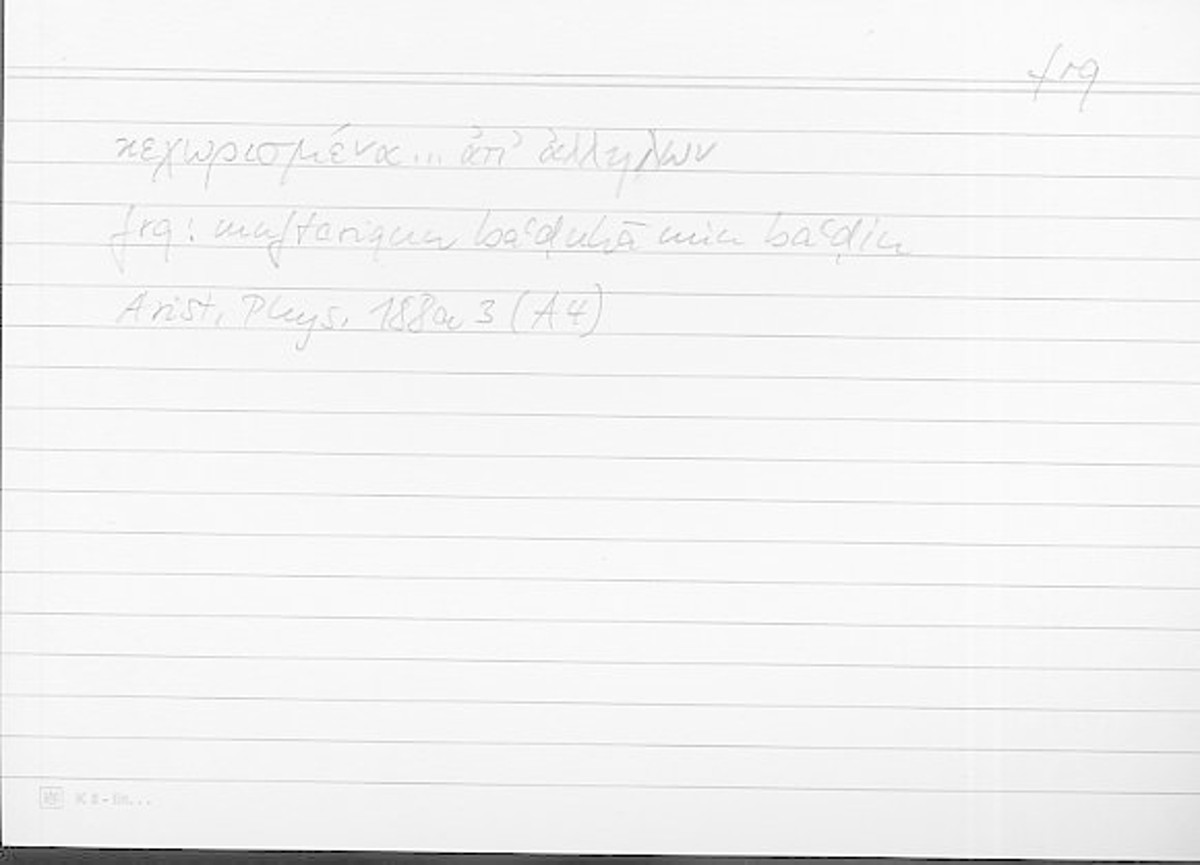 frq
κεχωρισμένα... ἀπ' ἀλλήλων
frq: muftariqun baʿḍuhā min baʿḍin
Arist. Phys. 188a 3 (A4)